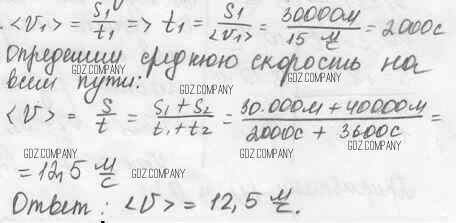 <V₁> = S₁/t₁ => t₁ = S₁/<V₁> = 30000м/15 м/с = 2000с
Определим среднюю скорость на
GDZ.COMPANY GDZ.COMPANY
всем пути:
GDZ.COMPANY
<V> = S/t = (S₁ + S₂)/(t₁ + t₂) = (30.000м + 40000м)/(2000с + 3600с) =
GDZ.COMPANY GDZ.COMPANY
= 12,5 м/с
GDZ.COMPANY
Ответ: <V> = 12,5 м/с.